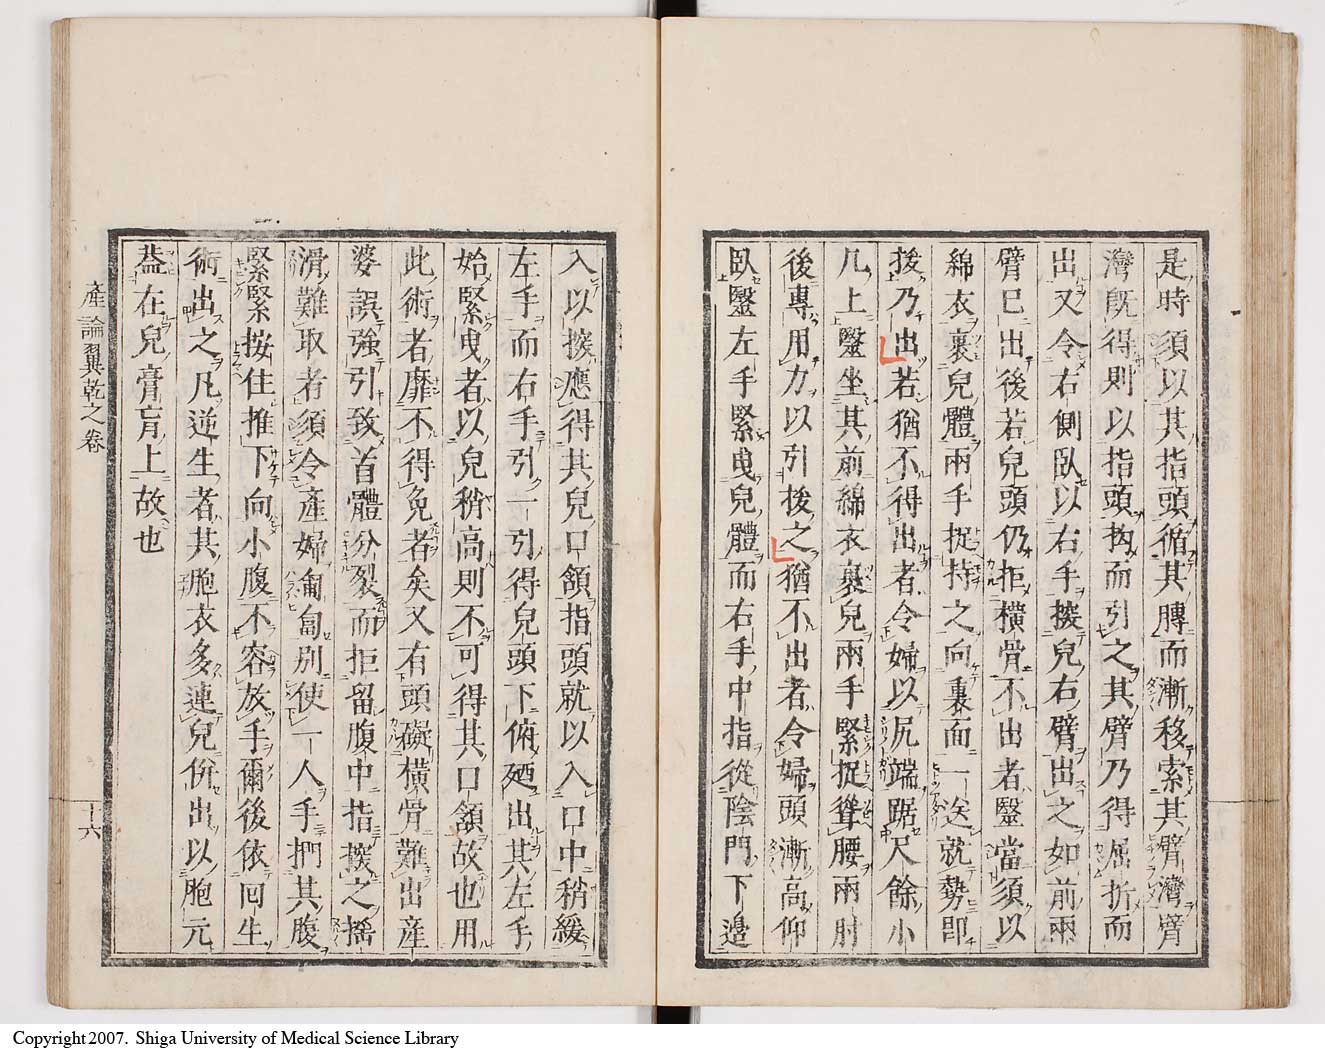 是時須以其指頭循其膞而漸移索其臂灣臂
灣既得則以指頭抅而引之其臂乃得屈折而
出又令右側臥以右手撥兒右臂出之如前兩
臂已出後若兒頭仍拒橫骨不出者毉當須以
綿衣裹兒體兩手捉持之向裏面一送就勢即
拨乃出若猶不得出者令婦以尻端踞尺餘小
几上毉坐其前綿衣裹兒兩手緊捉聳腰兩肘
後專用力以引拨之猶不出者令婦頭漸高仰
臥毉左手緊曳兒體而右手中指從陰門下邉
入以撥應得其兒口頷指頭就以入口中稍緩
左手而右手引一引得兒頭下俯廼出其左手
始緊曳者以兒稍高則不可得其口頷故也用
此術者靡不得免者矣又有頭礙橫骨難出産
婆誤強引致首體分裂而拒留腹中指撥之搖
滑難取者須令産婦匍匐別使一人手捫其腹
緊緊按住推下向小腹不容放手爾後依回生
術出之凡逆生者其胞衣多連兒併出以胞元
葢在兒膏肓上故也
産論翼乾之卷
十六
Copyright 2007. Shiga University of Medical Science Library